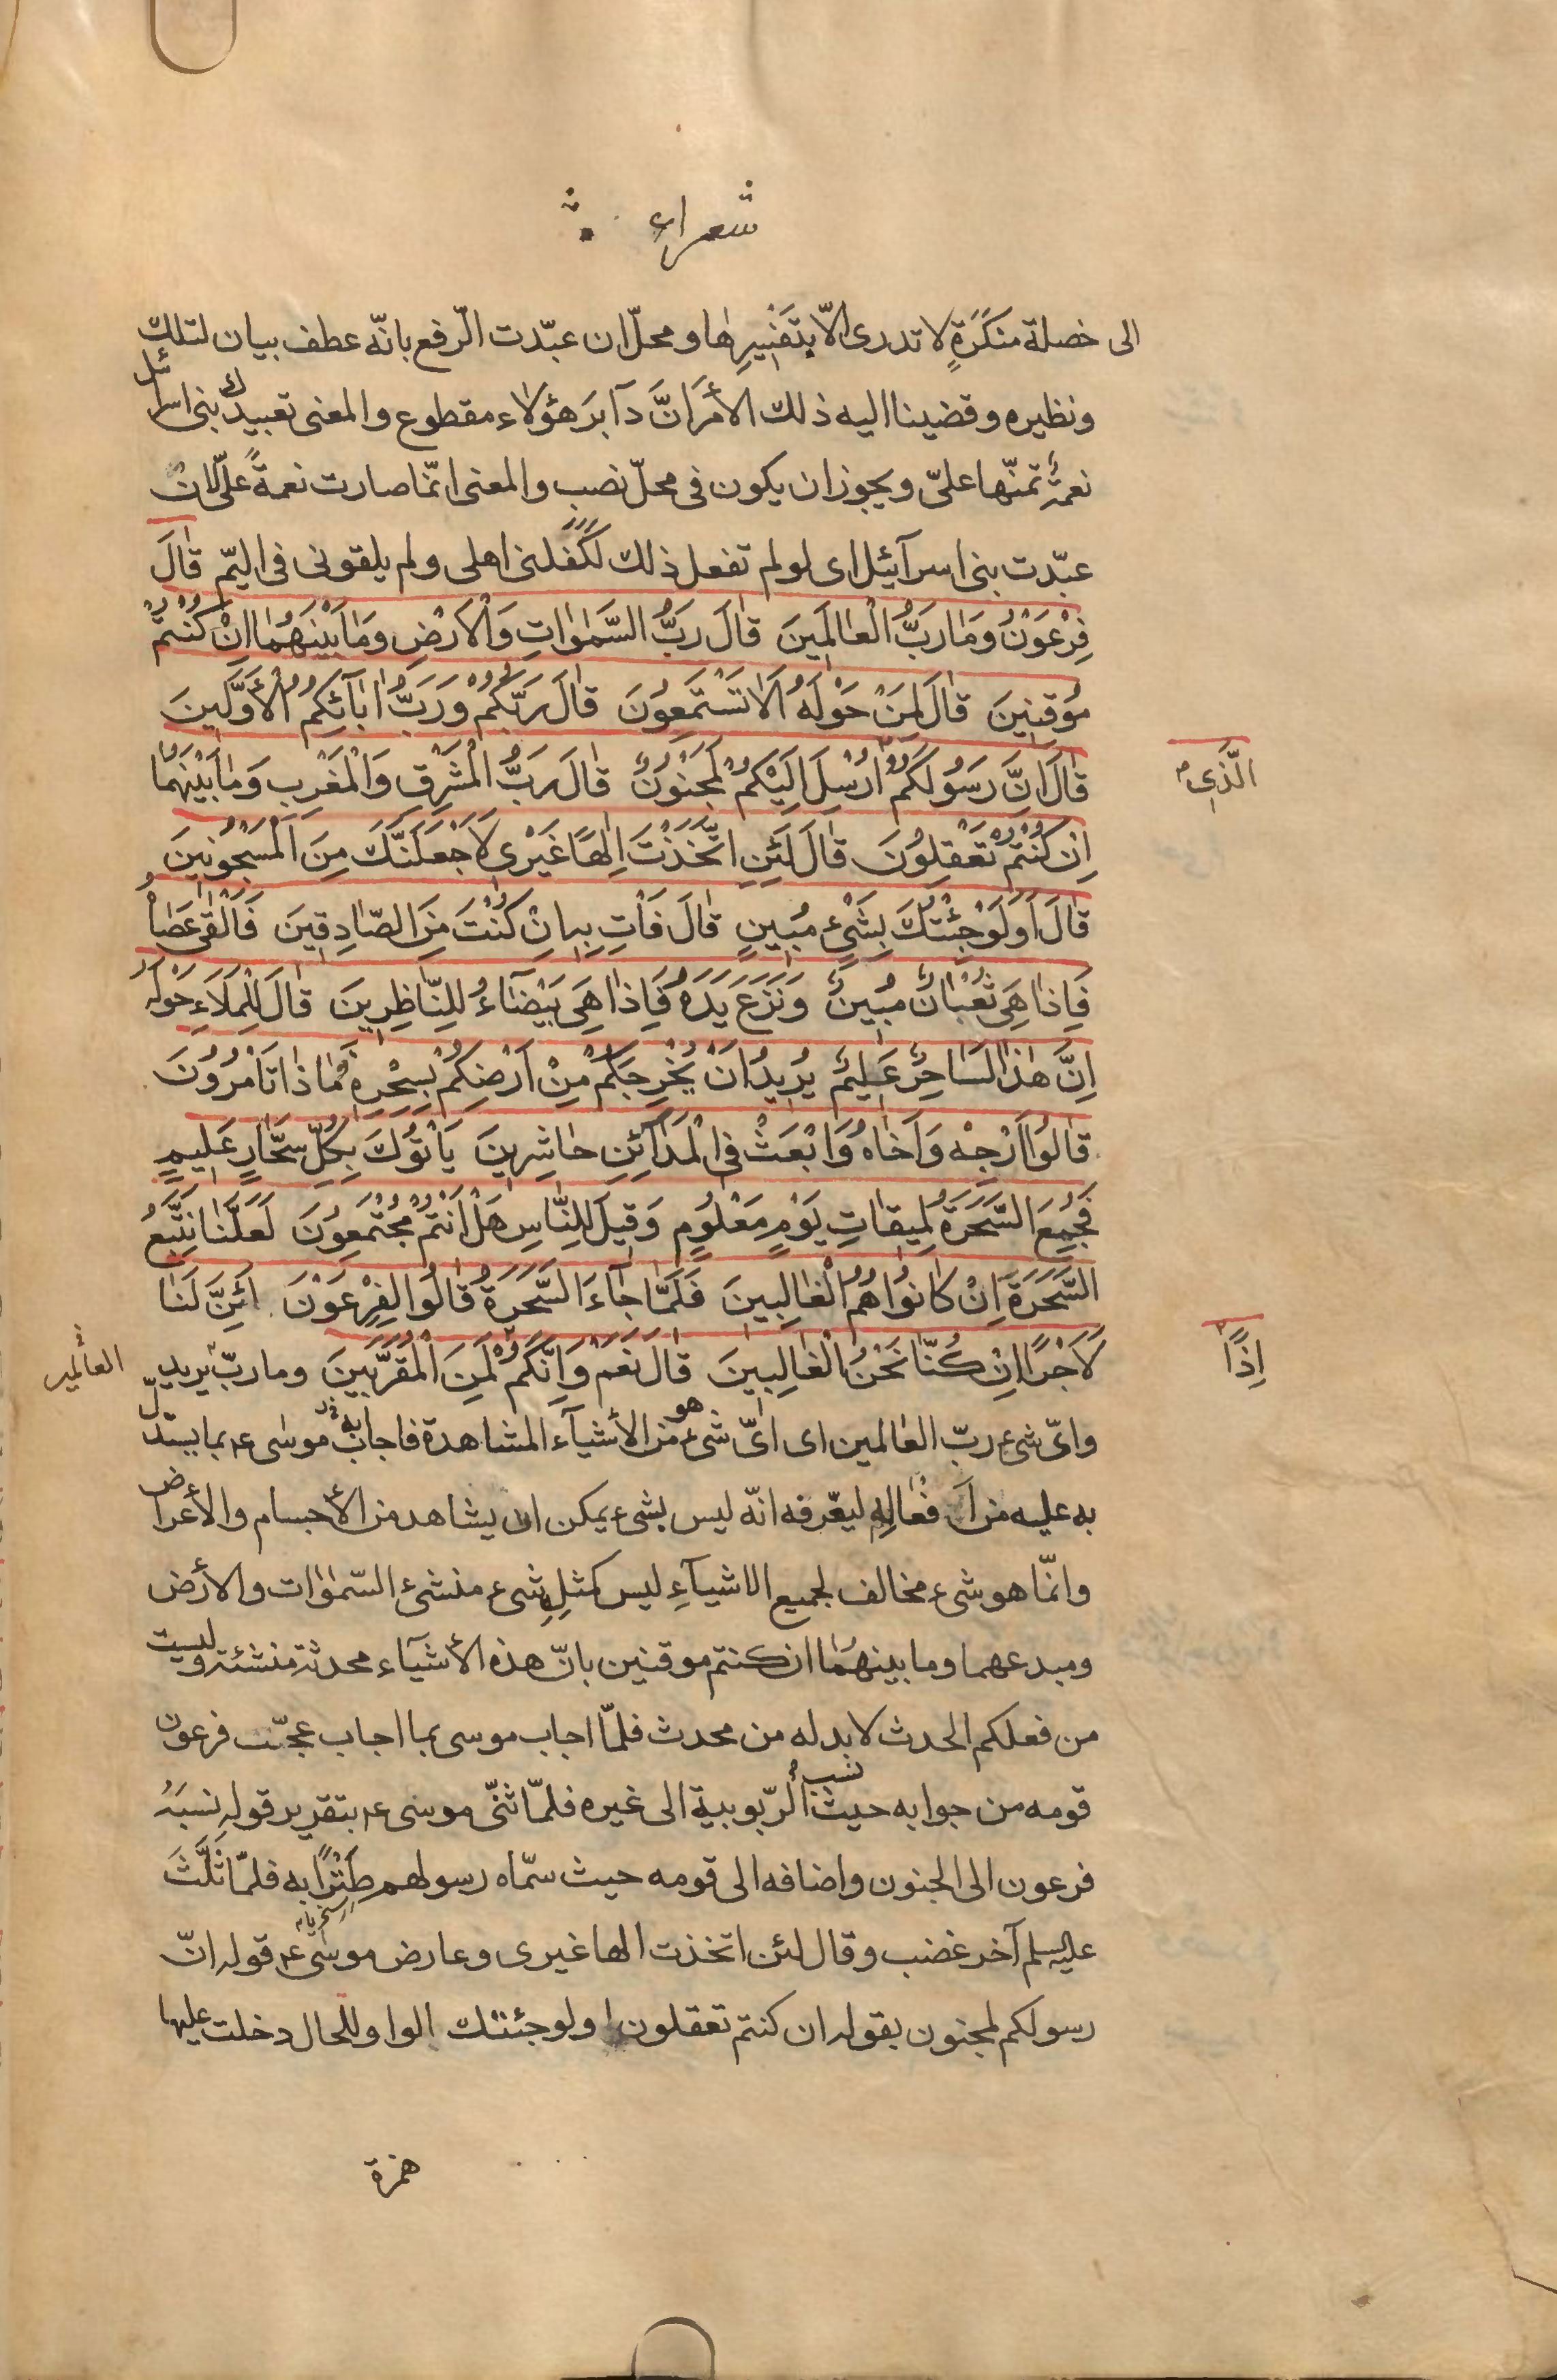 شعراء
الى خصلة منكَرَةٍ لا تدرى الّا بتفسيرها و محلّ ان عبّدت الرّفع بانّه عطف بيان لتلك
ونظيره وقضينا اليه ذلك الأمرَ انَّ دآبرَ هؤلاء مقطوع والمعنى تعبيدك بنى اسرائيل
نعمةٌ تمنّها علىّ ويجوز ان يكون فى محلّ نصب والمعنى انّما صارت نعمةً علىّ لان
عبّدت بنى اسرآئيل اى لو لم تفعل ذلك لكَفَلَنى اهلى ولم يلقونى فى اليمّ قٰالَ
فِرْعَوْنُ وَمٰا رَبُّ الْعٰالَمِينَ قٰالَ رَبُّ السَّمٰوٰاتِ وَالْاَرْضِ وَمٰا بَيْنَهُمٰا اِنْ كُنْتُمْ
مُوقِنِينَ قٰالَ لِمَنْ حَوْلَهُ اَلٰا تَسْتَمِعُونَ قٰالَ رَبُّكُمْ وَرَبُّ اٰبٰآئِكُمُ الْاَوَّلِينَ
قٰالَ اِنَّ رَسُولَكُمُ اُرْسِلَ اِلَيْكُمْ لَمَجْنُونٌ قٰالَ رَبُّ الْمَشْرِقِ وَالْمَغْرِبِ وَمٰا بَيْنَهُمٰا
الَّذِى
اِنْ كُنْتُمْ تَعْقِلُونَ قٰالَ لَئِنِ اتَّخَذْتَ اِلٰهًا غَيْرِى لَاَجْعَلَنَّكَ مِنَ الْمَسْجُونِينَ
قٰالَ اَوَلَوْ جِئْتُكَ بِشَىْءٍ مُبِينٍ قٰالَ فَأْتِ بِهِ اِنْ كُنْتَ مِنَ الصّٰادِقِينَ فَاَلْقٰى عَصٰاهُ
فَاِذٰا هِىَ ثُعْبٰانٌ مُبِينٌ وَنَزَعَ يَدَهُ فَاِذٰا هِىَ بَيْضٰآءُ لِلنّٰاظِرِينَ قٰالَ لِلْمَلَاءِ حَوْلَهُ
اِنَّ هٰذٰا لَسٰاحِرٌ عَلِيمٌ يُرِيدُ اَنْ يُخْرِجَكُمْ مِنْ اَرْضِكُمْ بِسِحْرِهِ فَمٰا ذٰا تَأْمُرُونَ
قٰالُوا اَرْجِهْ وَاَخٰاهُ وَابْعَثْ فِى الْمَدٰآئِنِ حٰاشِرِينَ يَأْتُوكَ بِكُلِّ سَحّٰارٍ عَلِيمٍ
فَجُمِعَ السَّحَرَةُ لِمِيقٰاتِ يَوْمٍ مَعْلُومٍ وَقِيلَ لِلنّٰاسِ هَلْ اَنْتُمْ مُجْتَمِعُونَ لَعَلَّنٰا نَتَّبِعُ
السَّحَرَةَ اِنْ كٰانُوا هُمُ الْغٰالِبِينَ فَلَمّٰا جٰآءَ السَّحَرَةُ قٰالُوا لِفِرْعَوْنَ اَئِنَّ لَنٰا
لَاَجْرًا اِنْ كُنّٰا نَحْنُ الْغٰالِبِينَ قٰالَ نَعَمْ وَاِنَّكُمْ لَمِنَ الْمُقَرَّبِينَ وما ربّ يريد
اِذًا
العالمين
واىّ شىء ربّ العٰالمين اى اىّ شىء هو من الأشيآء المشاهدة فاجابه موسٰى ع بما يستدلّ
به عليه من اَفعٰالِهِ ليعّرفه انّه ليس بشىء يمكن ان يشاهد من الأجسام والأعراض
وانّما هو شىء مخالف لجميع الاشيآءِ ليس كمثلِهِ شىء منشئ السّمٰوٰات والأرض
ومبدعهما وما بينهمٰا ان كنتم موقنين بانّ هذه الأشيآء محدثة منشئة وليست
من فعلكم المحدث لا بد له من محدث فلمّا اجاب موسى بما اجاب عجّب فرعون
قومه من جوابه حيث نسب الرّبوبية الى غيره فلمّا ثنّى موسى ع بتقرير قوله نسبَهُ
فرعون الى الجنون واضافه الى قومه حيث سمّاه رسولهم طَنْزًا به فلمّا ثَلَّثَ
سخريه
عليه السلم آخر غضب وقال لئن اتخذت الها غيرى وعارض موسٰى ع قوله انّ
رسولكم لمجنون بقوله ان كنتم تعقلون اولو جئتك الواو للحال دخلت عليها
همزة